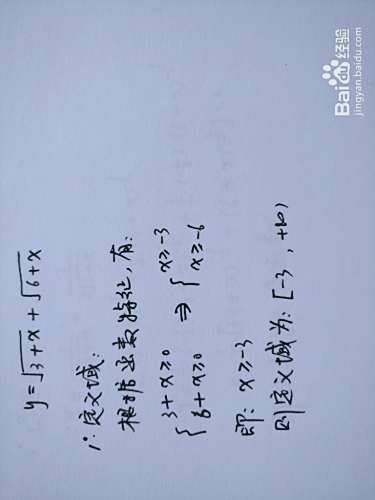 y=√(3+x)+√(6+x)
1°定义域:
根据函数特征,有:
{3+x≥0 ⇒ {x≥-3
{6+x≥0 {x≥-6
即: x≥-3
则定义域为: [-3, +∞)
Baidu经验
jingyan.baidu.com